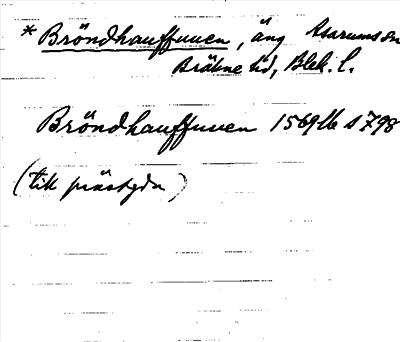 * Bröndhauffuuen, äng Asarums sn
Bräkne hd, Blek. l.
Bröndhauffuuen 1569 16 s 798
(till prästgdn)